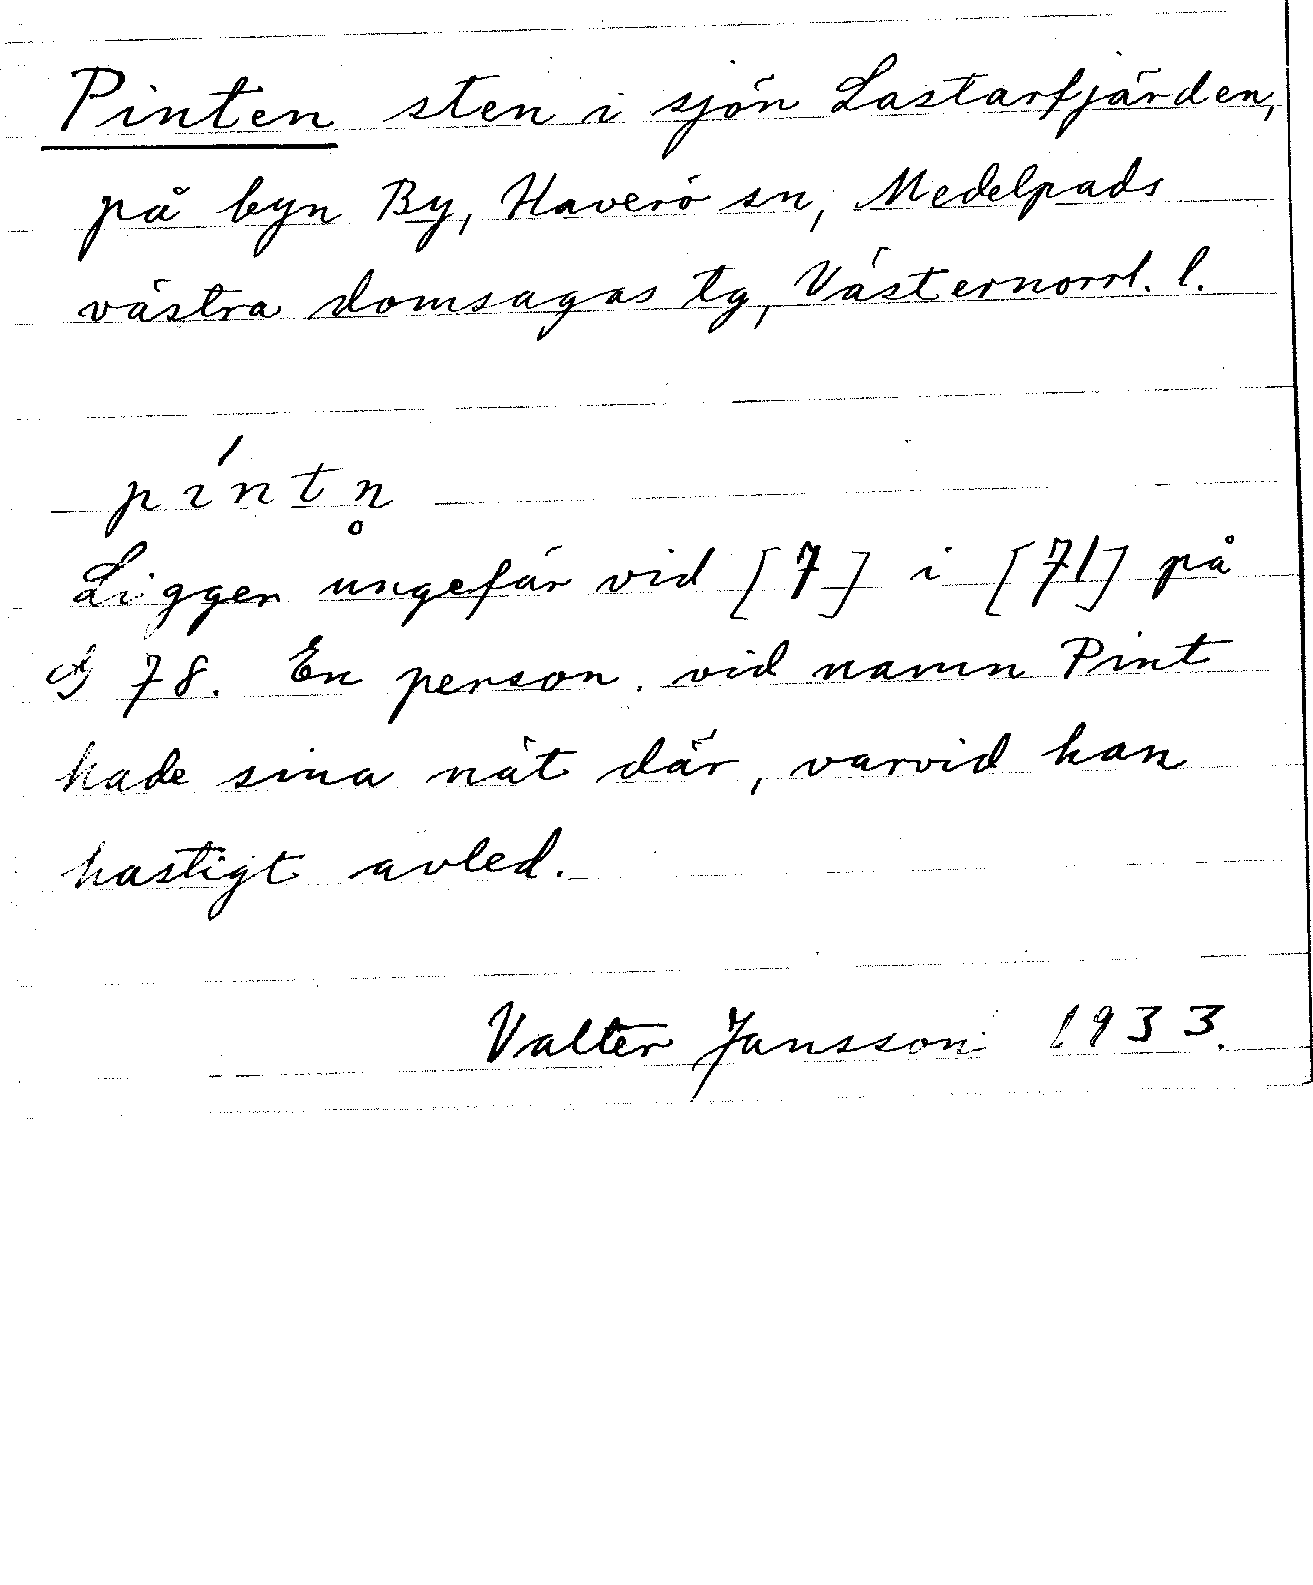 Pinten sten i sjön Lastarfjärden,
på byn By, Haverö sn, Medelpads
västra domsagas tg, Västernorrl. l.
píntn̥
Ligger ungefär vid [7] i [71] på
G 78. En person vid namn Pint
hade sina nät där, varvid han
hastigt avled.
Valter Jansson 1933.